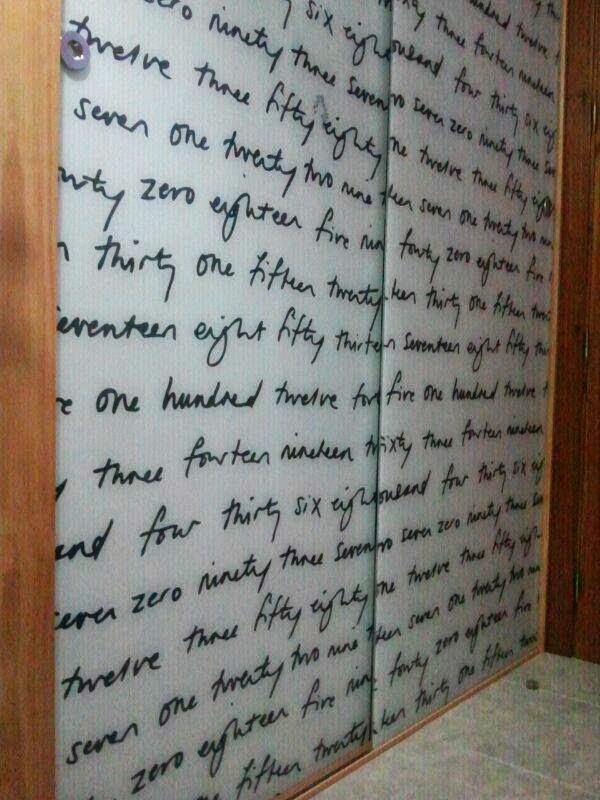 hundred twelve
zero ninety six eight three fourteen nineteen
twelve ninety three seven ousand four thirty six
three fifty eighty seven zero ninety three
seven one twenty two nine one twelve three fifty
zero eighteen five seven one twenty two
thirty one fifteen twenty fowty zero eighteen five
eight fifty thirteen thirty one fifteen
one hundred twelve seventeen eight fifty
three fourteen nineteen five one hundred twelve
four thirty six three fourteen nineteen
zero ninety three seven four thirty six
twelve three fifty eighty seven zero ninety three
seven one twenty two nine twelve three fifty
zero eighteen five seven one twenty two
fifteen twenty fowty zero eighteen five
thirty one fifteen